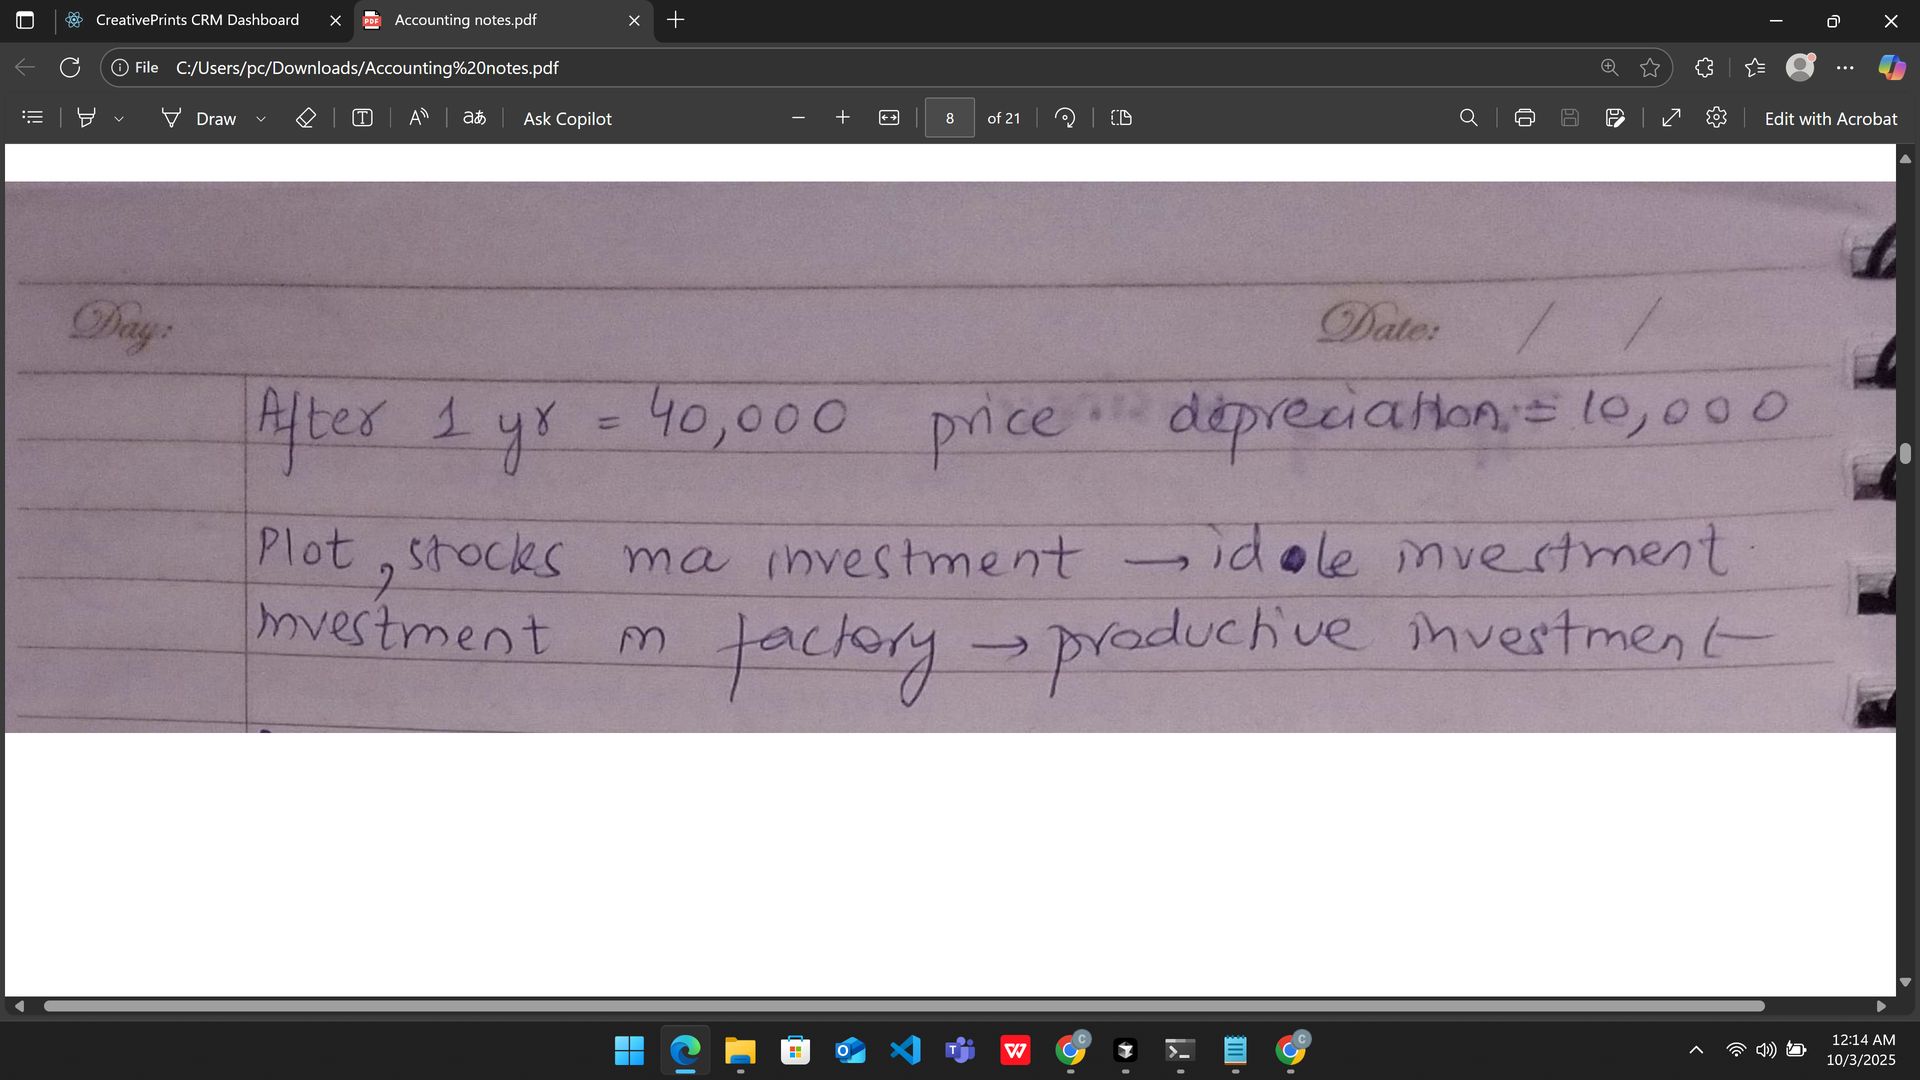 CreativePrints CRM Dashboard
Accounting notes.pdf
File C:/Users/pc/Downloads/Accounting%20notes.pdf
Draw
Ask Copilot
8 of 21
Edit with Acrobat
Day: Date: / /
After 1 yr = 40,000 price depreciation = 10,000
Plot, stocks ma investment → idle investment
Investment in factory → productive investment
12:14 AM
10/3/2025